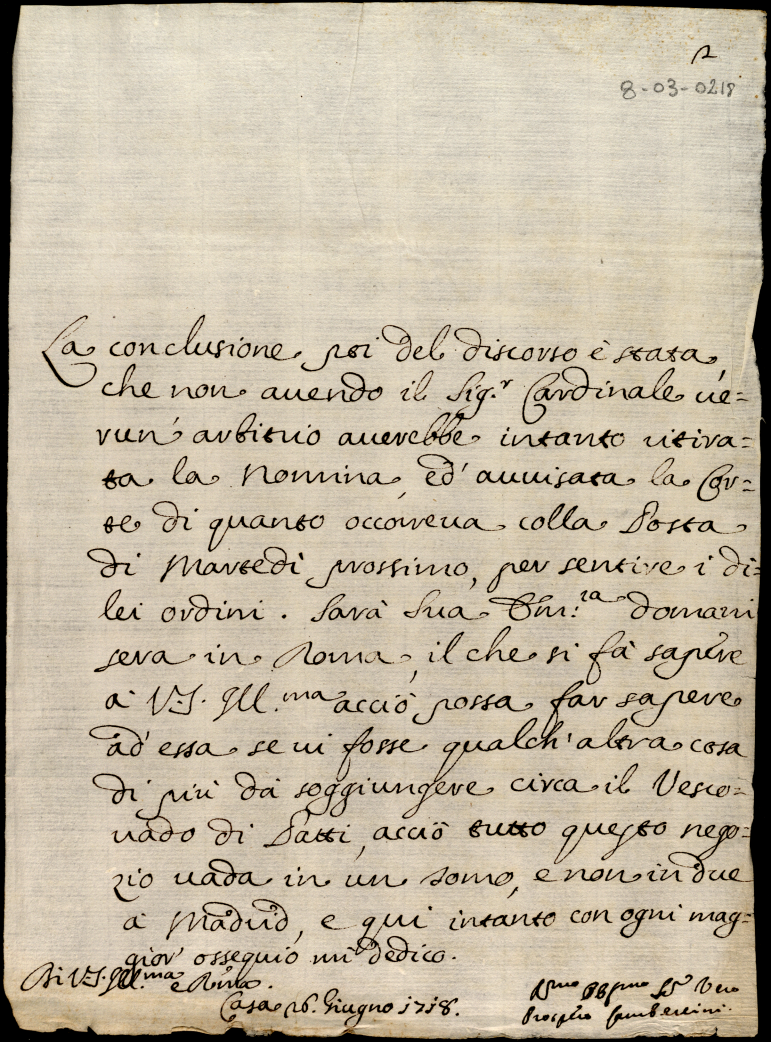 2
8-03-0218
La conclusione poi del discorso è stata,
che non auendo il Sig.r Cardinale ue=
run' arbitrio auerebbe intanto ritira=
ta la Nomina, ed' auuisata la Cor=
te di quanto occorreua colla Posta
di Martedì prossimo, per sentire i di=
lei ordini. Sarà Sua Em:za domani
sera in Roma, il che si fà sapere
à V.S. Ill.ma acciò possa far sapere
ad' essa se ui fosse qualch' altra cosa
di più da soggiungere circa il Vesco=
uado di Patti, acciò tutto questo nego=
zio uada in un somo, e non in due
à Madrid, e qui intanto con ogni mag=
gior' ossequio mi dedico.
Di V.S. Ill.ma e R.ma
Casa 26. Giugno 1718.
D.mo Obb.mo Vero
Prospero